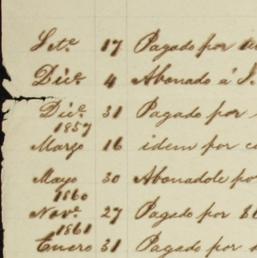 Set.e 17 Pagado por
Dic.e 4 Abonado á
Dic.e 31 Pagado por
1857
Marzo 16 idem por
Mayo 30 Abonadole por
1860
Nov.e 27 Pagado por
1861
Enero 31 Pagado por